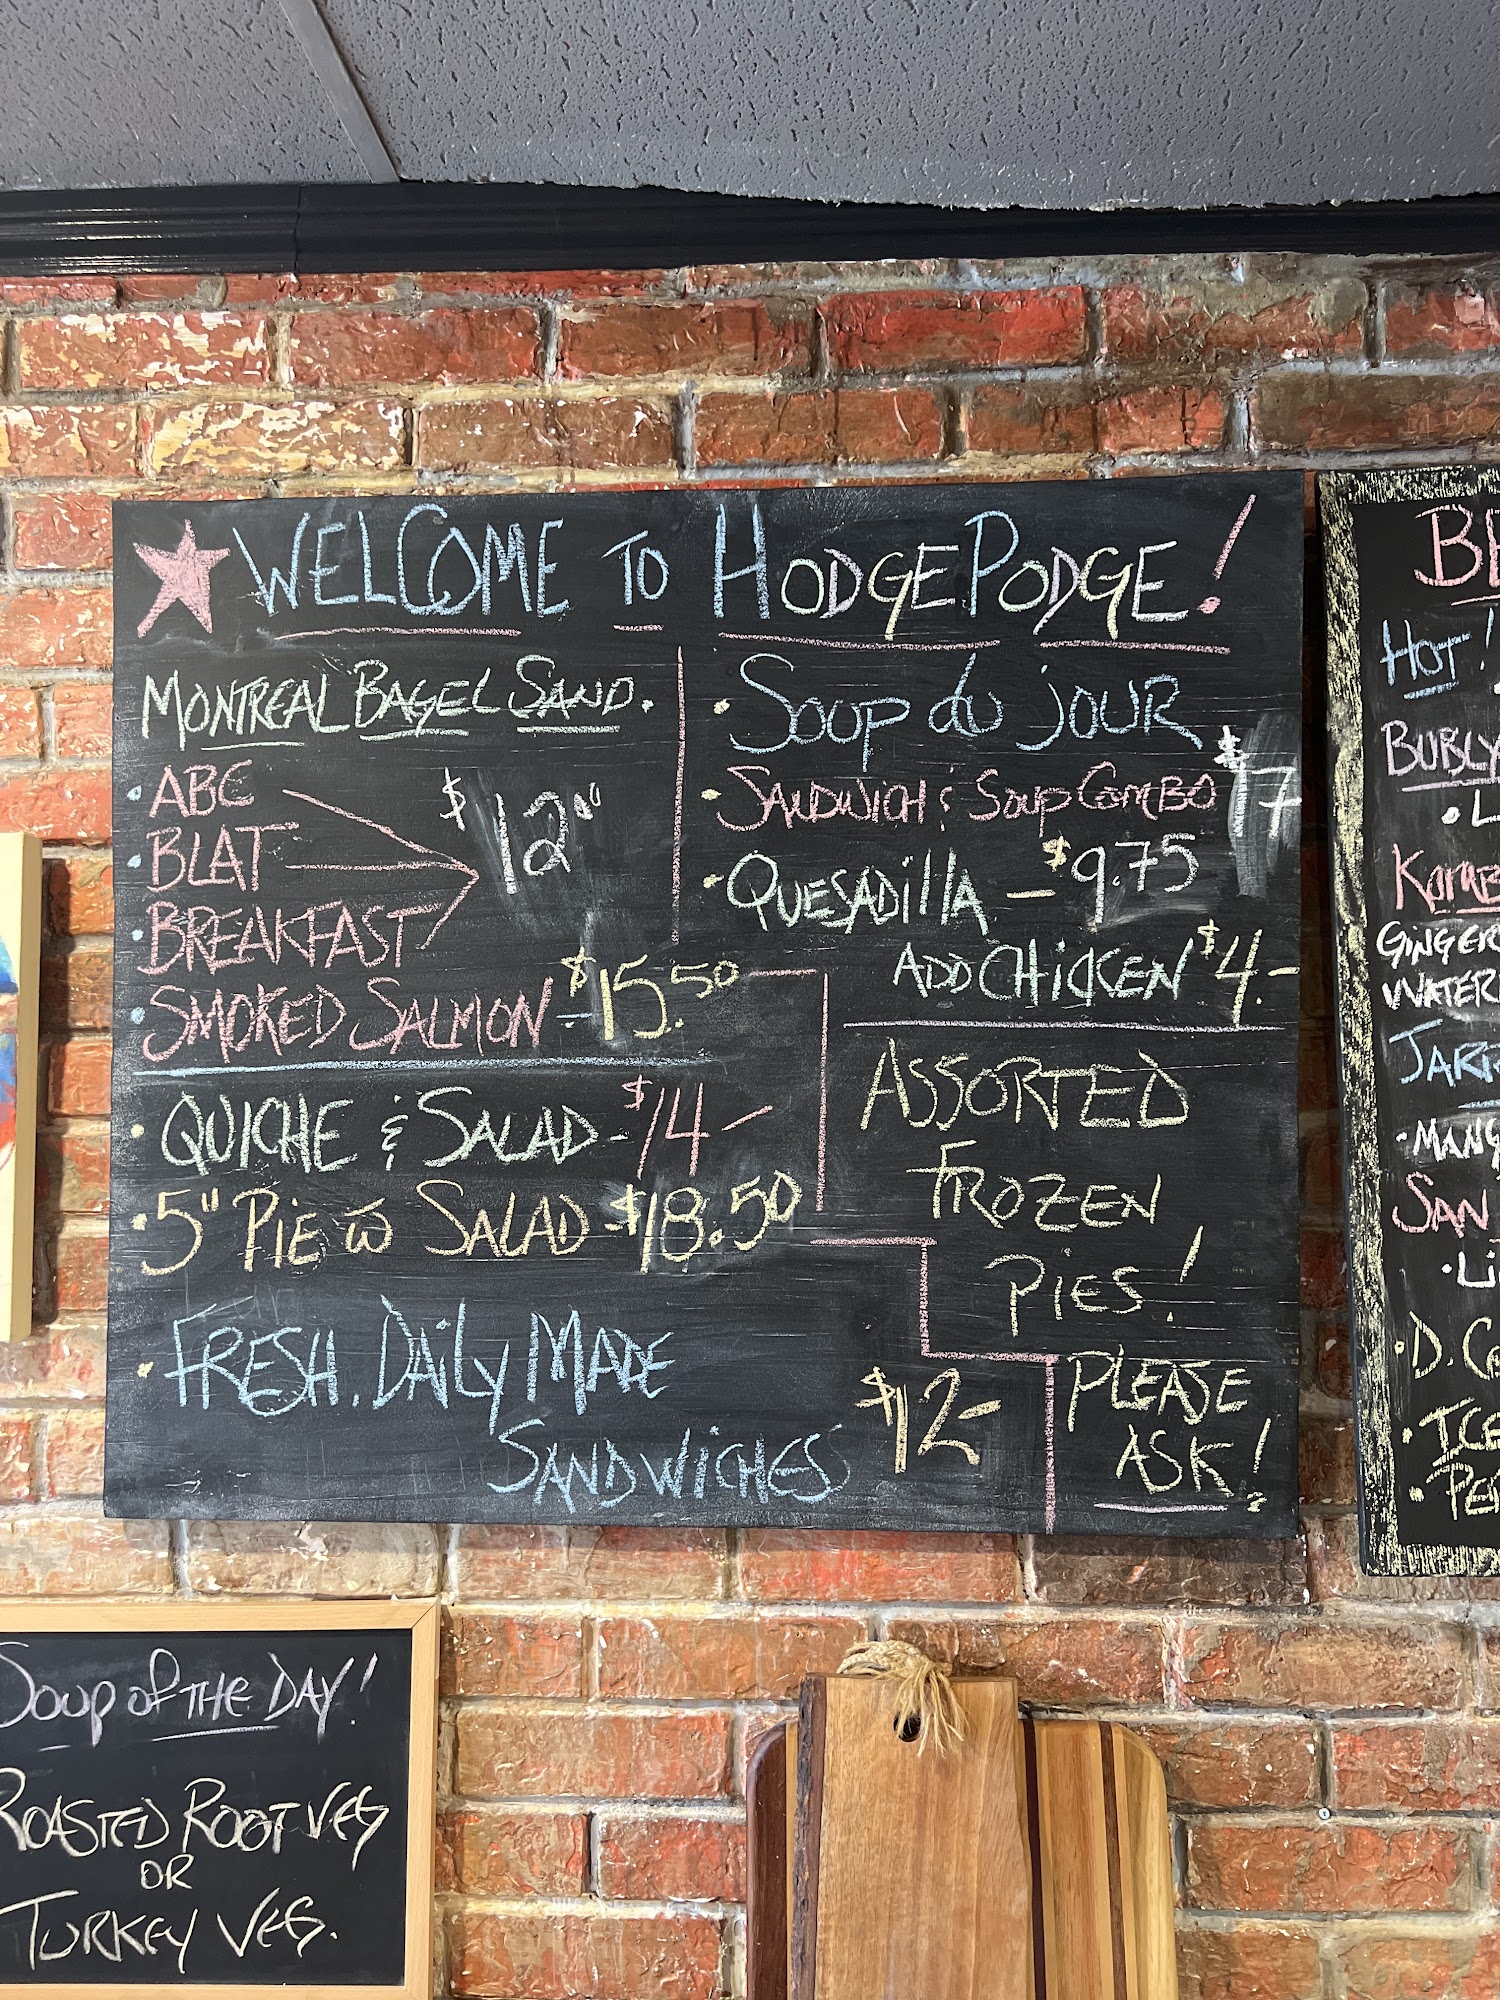 WELCOME TO HODGEPODGE!
MONTREAL BAGEL SAND.
• ABC
• BLAT
• BREAKFAST
$12"
• SMOKED SALMON - $15.50
• QUICHE & SALAD - $14 -
• 5" PIE w SALAD - $18.50
• FRESH. DAILY MADE
SANDWICHES $12-
• SOUP du JOUR
• SANDWICH & SOUP COMBO $17
• QUESADILLA - $9.75
ADD CHICKEN $4.-
ASSORTED
FROZEN
PIES!
PLEASE
ASK!
HOT!
BUBLY
GINGER
WATER
• MANG
SAN
• LI
• D. C
• ICE
• PE
SOUP OF THE DAY!
ROASTED ROOT VEG
OR
TURKEY VEG.